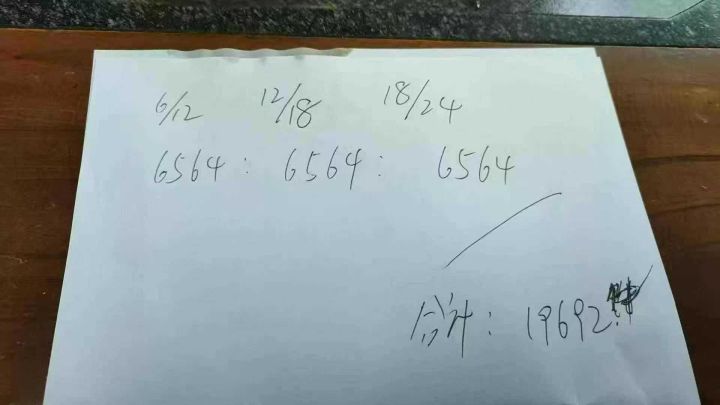 6/12 12/18 18/24
6564: 6564: 6564
合计: 19692.